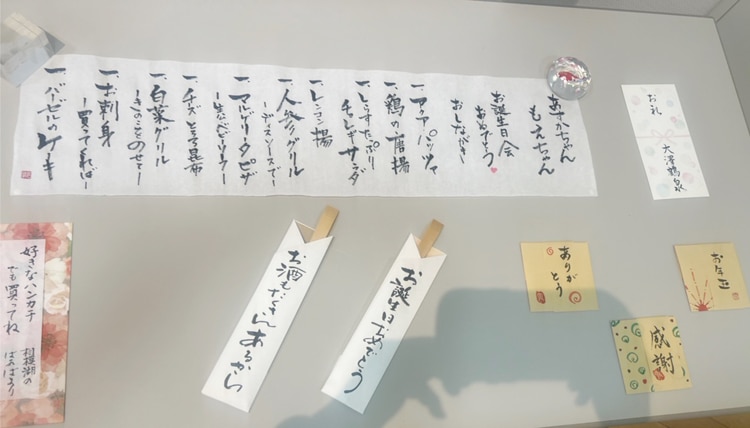 あすかちゃん
もえちゃん
お誕生日会
おめでとう
おしながき
一、アクアパッツァ
一、鶏の唐揚
一、とらすたっぷり
チョレギサラダ
一、レンコン揚
一、人参グリル
ーディルソースでー
一、マルゲリータピザ
ー生ハムとルッコラー
一、チーズとろろ昆布
一、白菜グリル
ーきのこをのせてー
一、お刺身
ー買ってくればー
一、バービルのケーキ
お礼
大澤鶴泉
好きなハンカチ
でも買ってね
相模湖の
ばぁばより
お酒もたくさんあるから
お誕生日おめでとう
ありがとう
お年玉
感謝